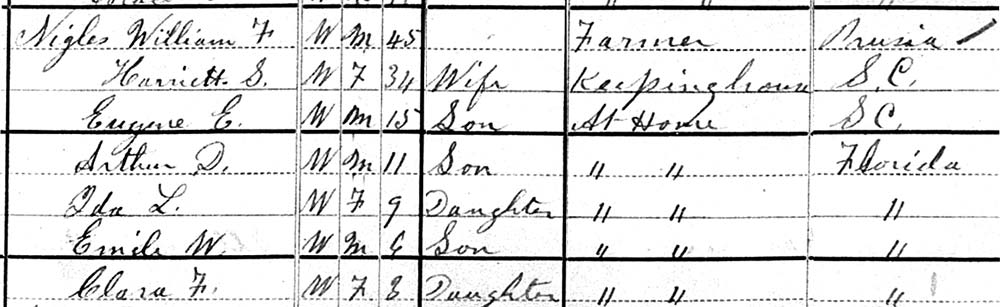 Nigles William F W M 45 Farmer Prusia
Harriett S. W F 34 Wife Keepinghouse S.C.
Eugene E. W M 15 Son At Home S.C.
Arthur D. W M 11 Son " " Florida
Ida L. W F 9 Daughter " " "
Emile W. W M 6 Son " " "
Clara F. W F 3 Daughter " " "